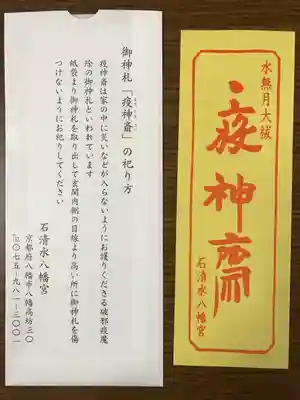 御神札「疫神斎」の祀り方
疫神斎は家の中に災いなどが入らないようにお護りくださる破邪疫魔
除の御神札といわれています
紙袋より御神札を取り出して玄関内側の目線より高い所に御神札を傷
つけないようにお祀りしてください
石清水八幡宮
京都府八幡市八幡高坊三〇
℡〇七五－九八一－三〇〇一
水無月大祓
疫神齋
石清水八幡宮